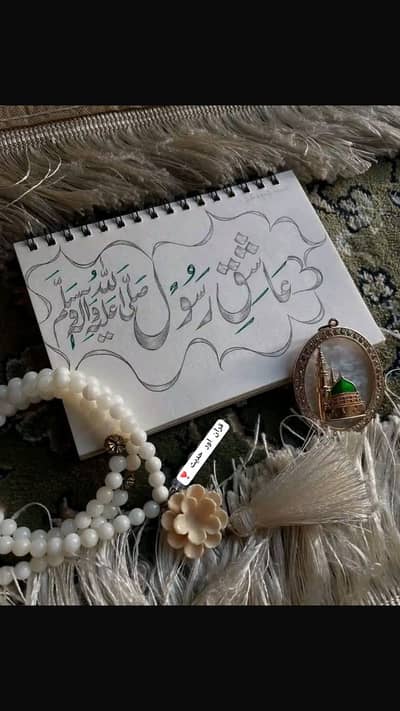 عَاشِقِ رَسُوْل صَلَّى اللّٰهُ عَلَيْهِ وَاٰلِهٖ وَسَلَّمَ
قرآن اور حدیث